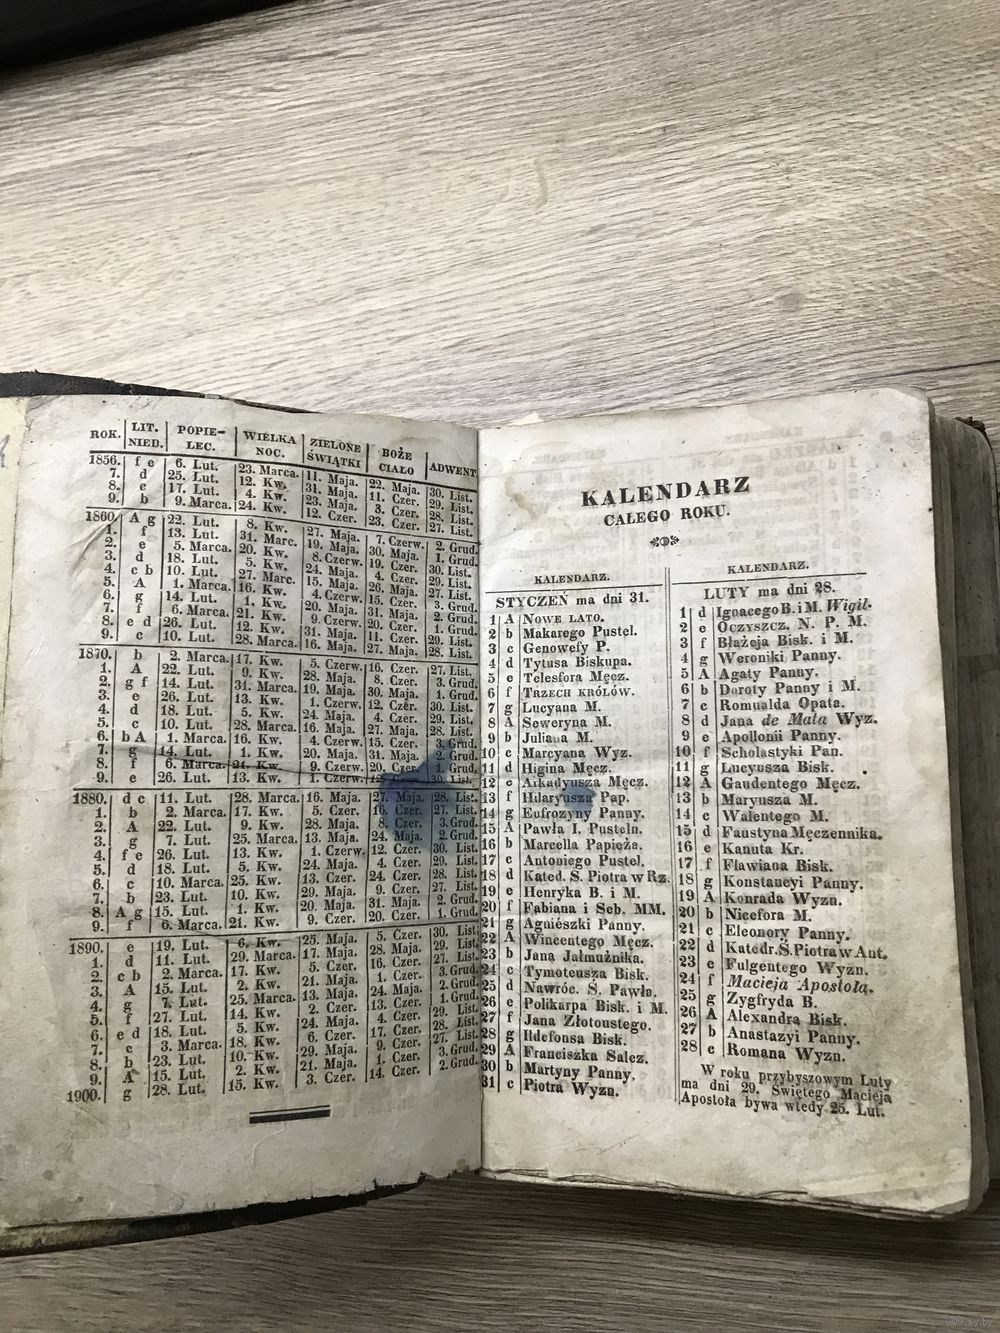 ROK. LIT. NIED. POPIE-LEC. WIELKA NOC. ZIELONE ŚWIĄTKI BOŻE CIAŁO ADWENT
1856. f e 6. Lut. 23. Marca. 11. Maja. 22. Maja. 30. List.
7. d 25. Lut. 12. Kw. 31. Maja. 11. Czer. 29. List.
8. c 17. Lut. 4. Kw. 23. Maja. 3. Czer. 28. List.
9. b 9. Marca. 24. Kw. 12. Czer. 23. Czer. 27. List.
1860. A g 22. Lut. 8. Kw. 27. Maja. 7. Czerw. 2. Grud.
1. f 13. Lut. 31. Marc. 19. Maja. 30. Maja. 1. Grud.
2. e 5. Marca. 20. Kw. 8. Czerw. 19. Czer. 30. List.
3. d 18. Lut. 5. Kw. 24. Maja. 4. Czer. 29. List.
4. c b 10. Lut. 27. Marc. 15. Maja. 26. Maja. 27. List.
5. A 1. Marca. 16. Kw. 4. Czerw. 15. Czer. 3. Grud.
6. g 14. Lut. 1. Kw. 20. Maja. 31. Maja. 2. Grud.
7. f 6. Marca. 21. Kw. 9. Czerw. 20. Czer. 1. Grud.
8. e d 26. Lut. 12. Kw. 31. Maja. 11. Czer. 29. List.
9. c 10. Lut. 28. Marca. 16. Maja. 27. Maja. 28. List.
1870. b 2. Marca. 17. Kw. 5. Czerw. 16. Czer. 27. List.
1. A 22. Lut. 9. Kw. 28. Maja. 8. Czer. 3. Grud.
2. g f 14. Lut. 31. Marca. 19. Maja. 30. Maja. 1. Grud.
3. e 26. Lut. 13. Kw. 1. Czerw. 12. Czer. 30. List.
4. d 18. Lut. 5. Kw. 24. Maja. 4. Czer. 29. List.
5. c 10. Lut. 28. Marca. 16. Maja. 27. Maja. 28. List.
6. b A 1. Marca. 16. Kw. 4. Czerw. 15. Czer. 3. Grud.
7. g 14. Lut. 1. Kw. 20. Maja. 31. Maja. 2. Grud.
8. f 6. Marca. 21. Kw. 9. Czerw. 20. Czer. 1. Grud.
9. e 26. Lut. 13. Kw. 1. Czerw. 12. 30. List.
1880. d c 11. Lut. 28. Marca. 16. Maja. 27. Maja. 28. List.
1. b 2. Marca. 17. Kw. 5. Czer. 16. Czer. 27. List.
2. A 22. Lut. 9. Kw. 28. Maja. 8. Czer. 3. Grud.
3. g 7. Lut. 25. Marca. 13. Maja. 24. Maja. 2. Grud.
4. f e 26. Lut. 13. Kw. 1. Czerw. 12. Czer. 30. List.
5. d 18. Lut. 5. Kw. 24. Maja. 4. Czer. 29. List.
6. c 10. Marca. 25. Kw. 13. Czer. 24. Czer. 28. List.
7. b 23. Lut. 10. Kw. 29. Maja. 9. Czer. 27. List.
8. A g 15. Lut. 1. Kw. 20. Maja. 31. Maja. 2. Grud.
9. f 6. Marca. 21. Kw. 9. Czer. 20. Czer. 1. Grud.
1890. e 19. Lut. 6. Kw. 25. Maja. 5. Czer. 30. List.
1. d 11. Lut. 29. Marca. 17. Maja. 28. Maja. 29. List.
2. c b 2. Marca. 17. Kw. 5. Czer. 16. Czer. 27. List.
3. A 15. Lut. 2. Kw. 21. Maja. 1. Czer. 3. Grud.
4. g 7. Lut. 25. Marca. 13. Maja. 24. Maja. 2. Grud.
5. f 27. Lut. 14. Kw. 2. Czer. 13. Czer. 1. Grud.
6. e d 18. Lut. 5. Kw. 24. Maja. 4. Czer. 29. List.
7. c 3. Marca. 18. Kw. 6. Czer. 17. Czer. 28. List.
8. b 23. Lut. 10. Kw. 29. Maja. 9. Czer. 27. List.
9. A 15. Lut. 2. Kw. 21. Maja. 1. Czer. 3. Grud.
1900. g 28. Lut. 15. Kw. 3. Czer. 14. Czer. 2. Grud.
KALENDARZ
CAŁEGO ROKU.
KALENDARZ.
STYCZEŃ ma dni 31.
1 A NOWE LATO.
2 b Makarego Pustel.
3 c Genowefy P.
4 d Tytusa Biskupa.
5 e Telesfora Męcz.
6 f TRZECH KRÓLÓW.
7 g Lucyana M.
8 A Seweryna M.
9 b Juliana M.
10 c Marcyana Wyz.
11 d Higina Męcz.
12 e Arkadyusza Męcz.
13 f Hilaryusza Pap.
14 g Eufrozyny Panny.
15 A Pawła I. Pusteln.
16 b Marcella Papieża.
17 c Antoniego Pustel.
18 d Kated. Ś. Piotra w Rz.
19 e Henryka B. i M.
20 f Fabiana i Seb. MM.
21 g Agnieszki Panny.
22 A Wincentego Męcz.
23 b Jana Jałmużnika.
24 c Tymoteusza Bisk.
25 d Nawróc. Ś. Pawła.
26 e Polikarpa Bisk. i M.
27 f Jana Złotoustego.
28 g Ildefonsa Bisk.
29 A Franciszka Salez.
30 b Martyny Panny.
31 c Piotra Wyzn.
KALENDARZ.
LUTY ma dni 28.
1 d Ignacego B. i M. Wigil.
2 e OCZYSZCZ. N. P. M.
3 f Błażeja Bisk. i M.
4 g Weroniki Panny.
5 A Agaty Panny.
6 b Doroty Panny i M.
7 c Romualda Opata.
8 d Jana de Mata Wyz.
9 e Apollonii Panny.
10 f Scholastyki Pan.
11 g Lucyusza Bisk.
12 A Gaudentego Męcz.
13 b Maryusza M.
14 c Walentego M.
15 d Faustyna Męczennika.
16 e Kanuta Kr.
17 f Flawiana Bisk.
18 g Konstancyi Panny.
19 A Konrada Wyzn.
20 b Nicefora M.
21 c Eleonory Panny.
22 d Katedr. Ś. Piotra w Ant.
23 e Fulgentego Wyzn.
24 f Macieja Apostoła.
25 g Zygfryda B.
26 A Alexandra Bisk.
27 b Anastazyi Panny.
28 c Romana Wyzn.
W roku przybyszowym Luty
ma dni 29. Świętego Macieja
Apostoła bywa wtedy 25. Lut.
www.ay.by